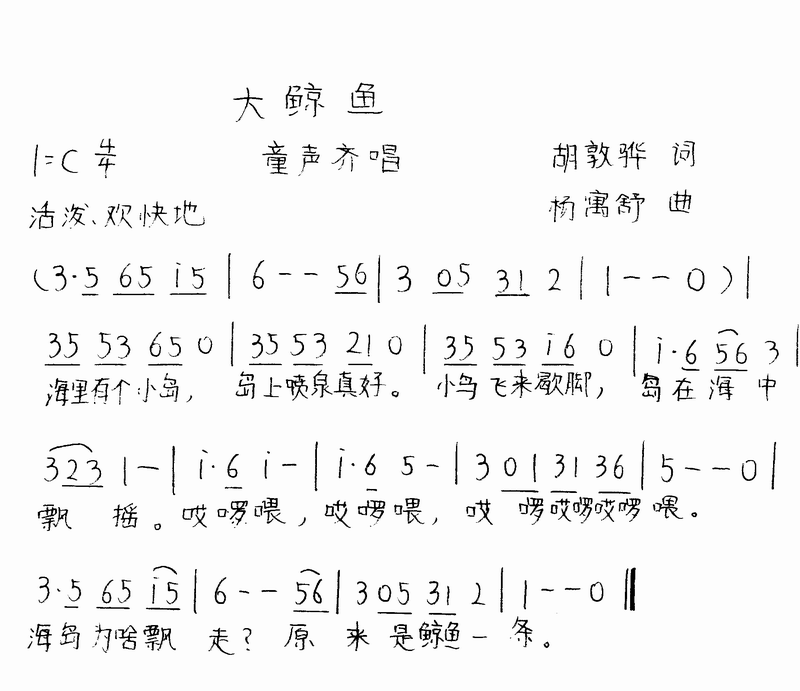 大鲸鱼
1=C 4/4 童声齐唱 胡敦骅 词
活泼、欢快地 杨寓舒 曲
(3·5 65 i5 | 6-- 56 | 3 05 31 2 | 1--0 ) |
35 53 65 0 | 35 53 21 0 | 35 53 i6 0 | i·6 56 3 |
海里有个小岛， 岛上喷泉真好。 小鸟飞来歇脚， 岛在海中
323 1- | i·6 i- | i·6 5- | 3 01 31 36 | 5--0 |
飘 摇。哎啰喂，哎啰喂，哎 啰哎啰哎啰喂。
3·5 65 i5 | 6-- 56 | 3 05 31 2 | 1--0 ‖
海岛为啥飘 走？原 来是鲸鱼一 条。